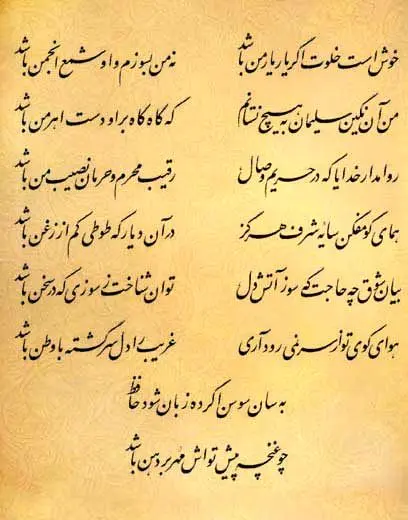 خوش است خلوت اگر یار یار من باشد نه من بسوزم و او شمع انجمن باشد
من آن نگین سلیمان به هیچ نستانم که گاه گاه بر او دست اهرمن باشد
روا مدار خدایا که در حریم وصال رقیب محرم و حرمان نصیب من باشد
همای گو مفکن سایه شرف هرگز در آن دیار که طوطی کم از زغن باشد
بیان شوق چه حاجت که سوز آتش دل توان شناخت ز سوزی که در سخن باشد
هوای کوی تو از سر نمی رود آری غریب را دل سرگشته با وطن باشد
به سان سوسن اگر ده زبان شود حافظ
چو غنچه پیش تواش مهر بر دهن باشد